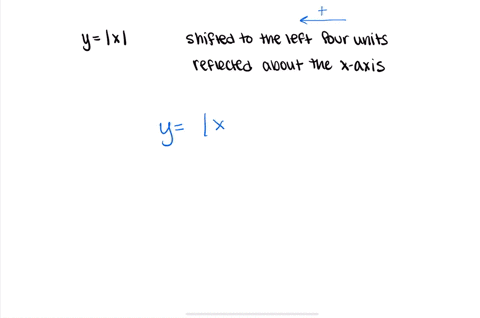 +
y=|x| shifted to the left four units
reflected about the x-axis
y= |x